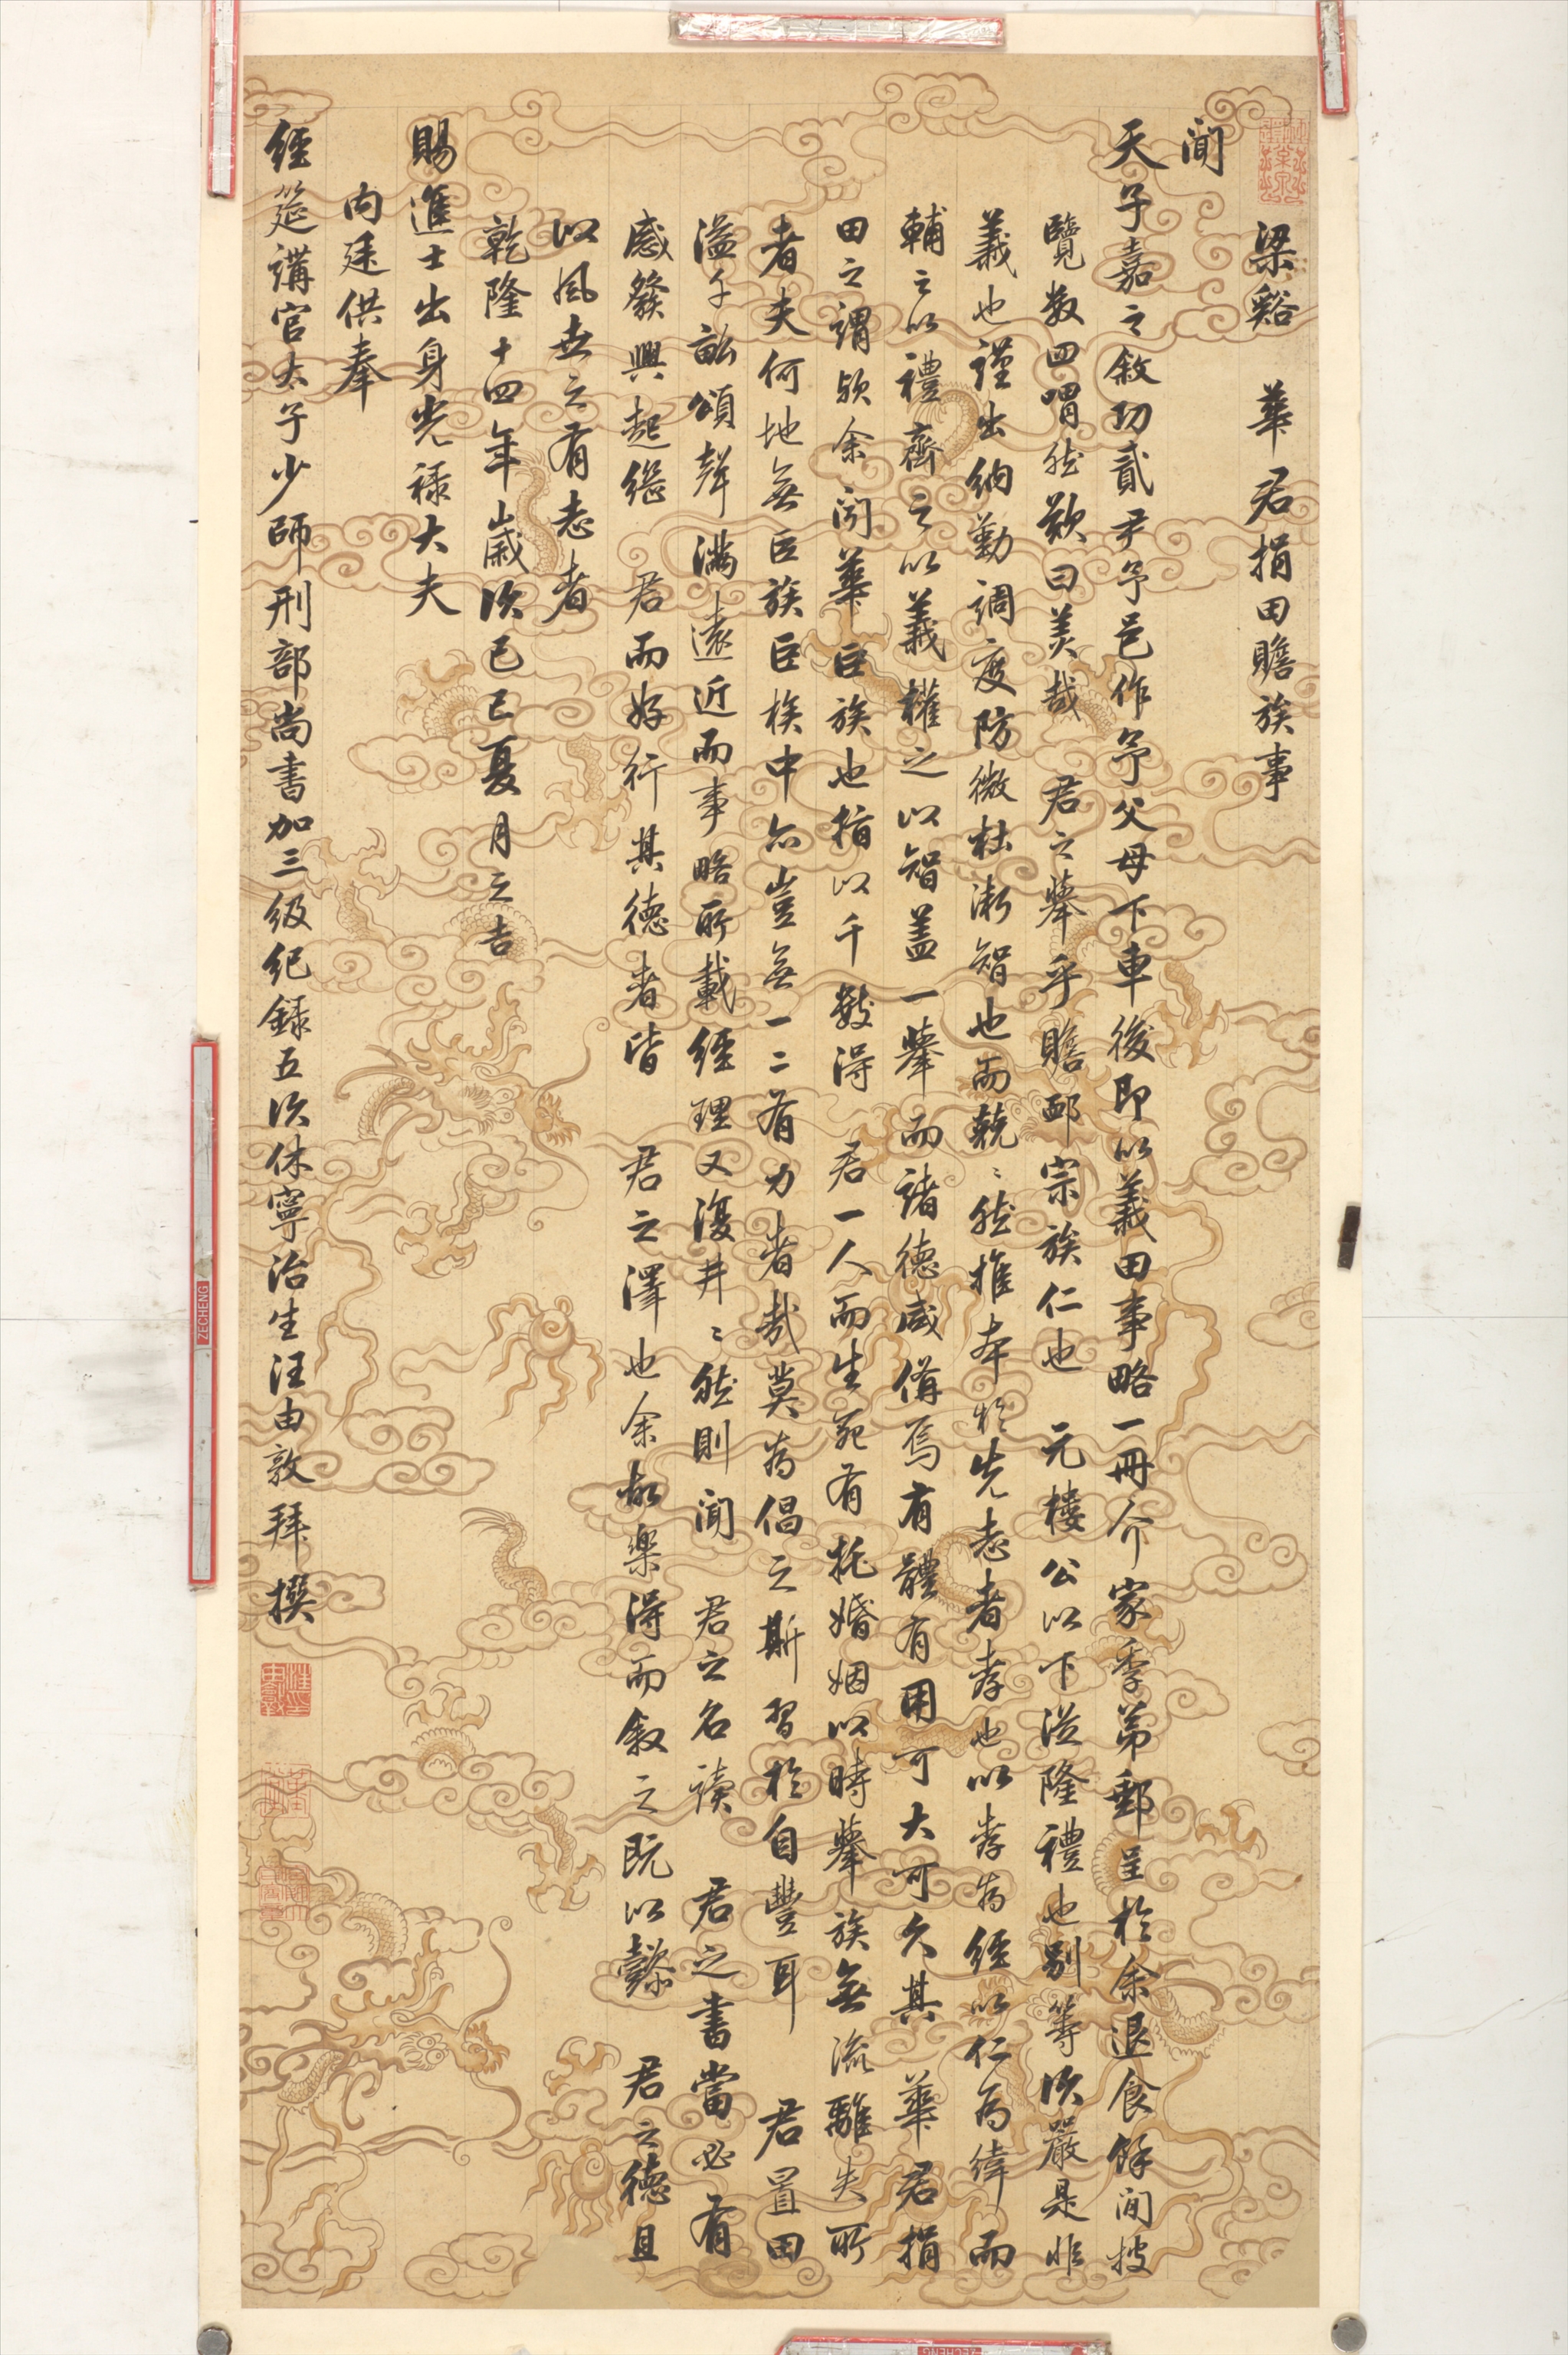 梁谿 華君捐田贍族事
聞
天子嘉之敘功貳尹予邑作予父母下車後即以義田事略一冊介家季弟郵呈於余退食餘閒披
覽數四喟然歎曰美哉 君之舉乎贍郘宗族仁也 元樓公以下從隆禮也別等次嚴是非
義也謹出納勤調度防微杜漸智也而兢〻然推本於先志者孝也以孝為經以仁為緯而
輔之以禮齊之以義權之以智蓋一舉而諸德咸備焉有體有用可大可久其 華君捐
田之謂歟余聞華巨族也指以千數得 君一人而生死有托婚姻以時舉族無流離失所
者夫何地無巨族巨族中亦豈無一二有力者哉莫為倡之斯習於自豐耳 君置田
溢千畝頌聲滿遠近而事略所載經理又復井〻然則聞 君之名讀 君之書當必有
感發興起繼 君而好行其德者皆 君之澤也余故樂得而敘之既以懿 君之德且
以風世之有志者
乾隆十四年歲次己巳夏月之吉
賜進士出身光祿大夫
內廷供奉
經筵講官太子少師刑部尚書加三級紀錄五次休寧治生汪由敦拜撰
ZECHENG
ZECHENG